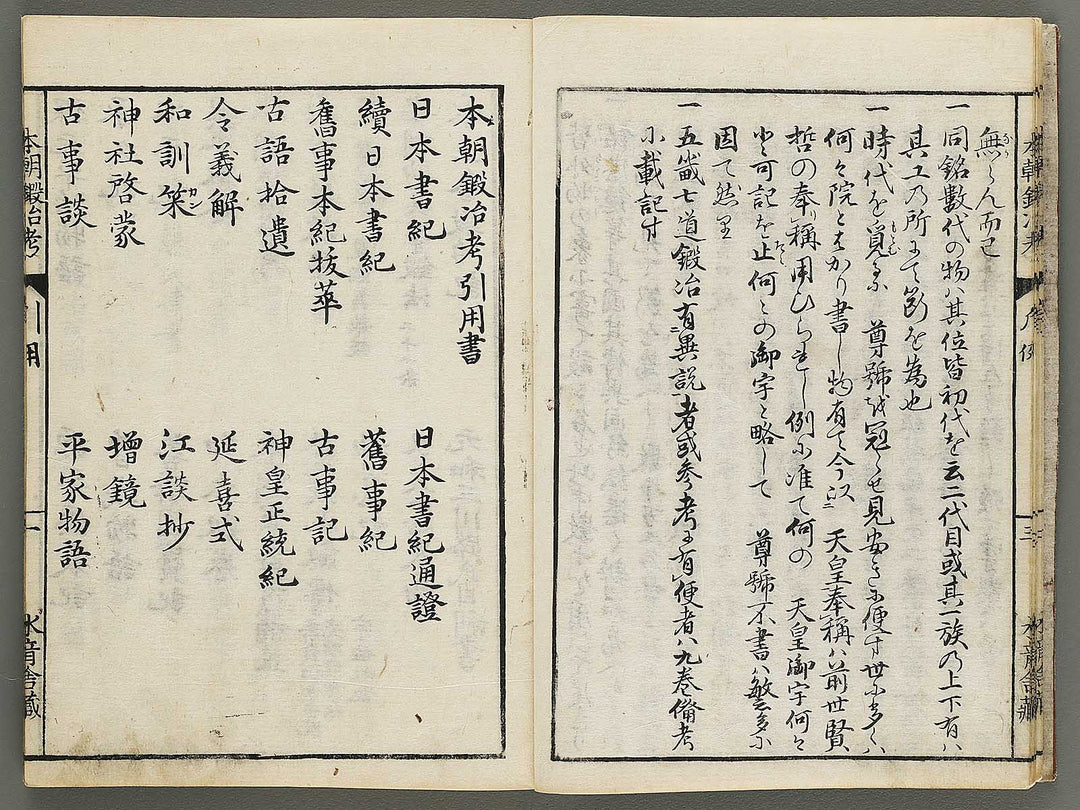 無らん而已
一 同銘數代の物ハ其位皆初代を云二代目或其一族乃上下有ハ
其工乃所にて斷を為也
一 時代を覓るに 尊號を冠らせ見安きに便す世に多くハ
何々院とはかり書し物有て今以 天皇奉稱ハ前世賢
哲の奉稱用ひられし例に准て何の 天皇御宇何々
と可記を止何々の御宇と略して 尊號不書ハ敬多に
因て然り
一 五畿七道鍛冶有異説者或参考に有便者ハ九巻備考
に載記す
本朝鍛冶考引用書
日本書紀 日本書紀通證
續日本書紀 舊事紀
舊事本紀抜萃 古事記
古語拾遺 神皇正統紀
令義解 延喜式
和訓栞 江談抄
神社啓蒙 增鏡
古事談 平家物語
本朝鍛冶考 引用 一 水音舎藏